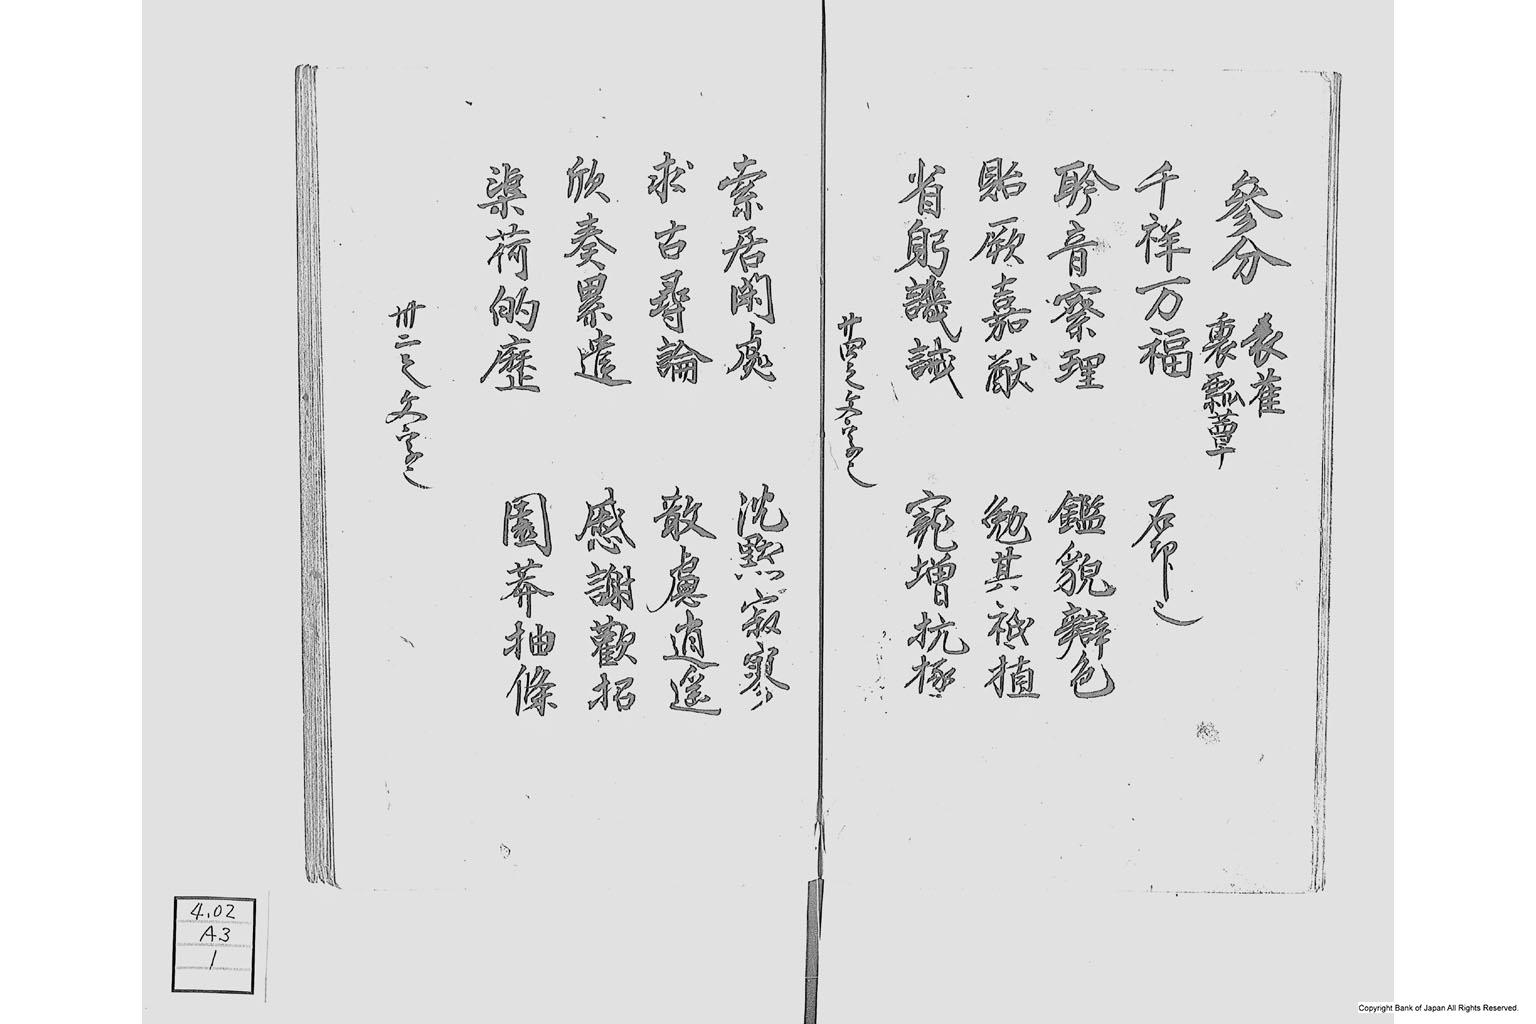 參分
表雀
裏瓢蕈
千祥万福
石印之
聆音察理
鑑貌辯色
貽厥嘉猷
勉其祗植
省躬譏誡
寵增抗極
廿四之文字之
索居閑處
沈默寂寥
求古尋論
散慮逍遥
欣奏累遣
慼謝歡招
渠荷的歷
園莽抽條
卅二之文字之
4.02
A3
1
Copyright Bank of Japan All Rights Reserved.